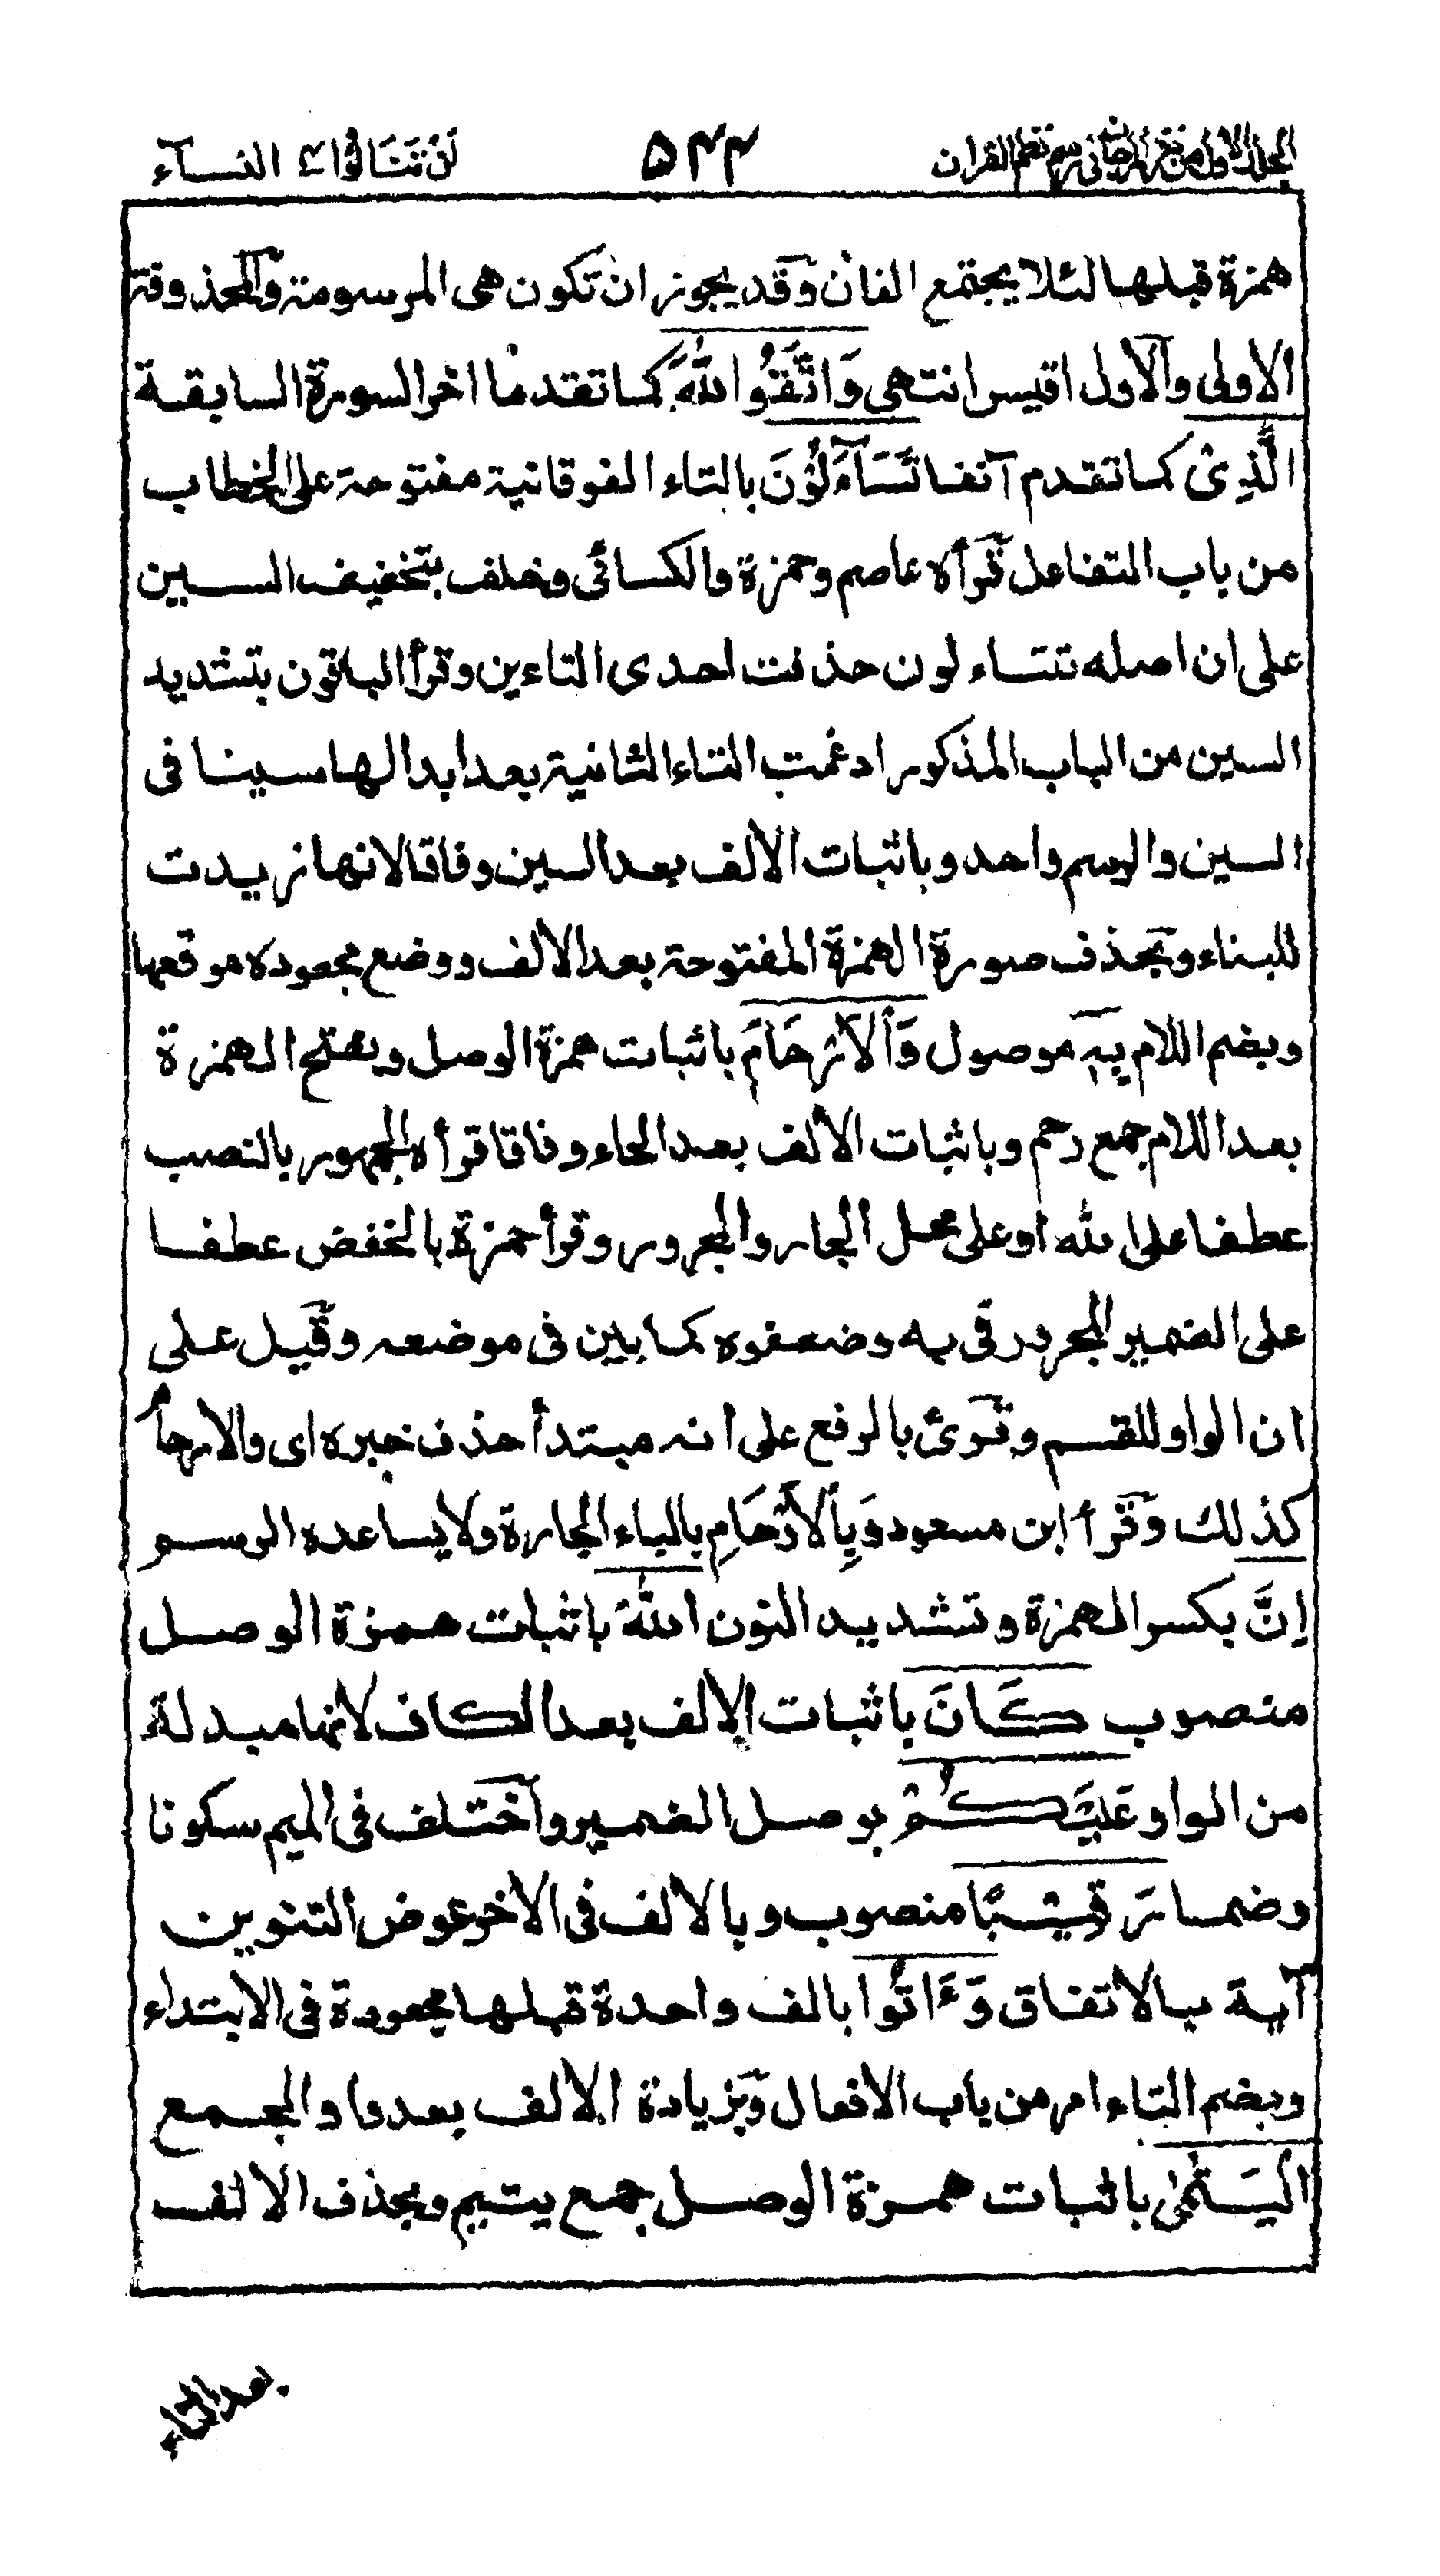 المجلد الاول من نثر المرجان فی رسم نظم القران ۵۴۴ لَنْ تَنَالُوا ۴ النسآء
همزة قبلها لئلا يجتمع الفان وقد يجوز ان تكون هى المرسومة والمحذوفة
الاولى والاول اقيس انتهى وَاتَّقُوا اللّٰهَ كما تقدما اخر السورة السابقة
الَّذِىْ كما تقدم آنفا تَسَآءَلُوْنَ بالتاء الفوقانية مفتوحة على الخطاب
من باب التفاعل قرأه عاصم وحمزة والكسائى وخلف بتخفيف السين
على ان اصله تتساءلون حذفت احدى التاءين وقرأ الباقون بتشديد
السين من الباب المذكور ادغمت التاء الثانية بعد ابدالها سينا فى
السين والرسم واحد وباثبات الالف بعد السين وفاقا لانها زيدت
للبناء وبحذف صورة الهمزة المفتوحة بعد الالف ووضع مجعوده موقعها
وبضم اللام بِهٖ موصول وَالْاَرْحَامَ باثبات همزة الوصل وبفتح الهمزة
بعد اللام جمع رحم وباثبات الالف بعد الحاء وفاقا قرأه الجمهور بالنصب
عطفا على الله او على محل الجار والمجرور وقرأ حمزة بالخفض عطفا
على الضمير المجرور فى به وضعفوه كما بين فى موضعه وقيل على
ان الواو للقسم وقرئ بالرفع على انه مبتدأ حذف خبره اى والارحامُ
كذلك وقرأ ابن مسعود وَبِالْاَرْحَامِ بالباء الجارة ولا يساعده الرسم
اِنَّ بكسر الهمزة وتشديد النون اللّٰهَ باثبات همزة الوصل
منصوب كَانَ باثبات الالف بعد الكاف لانها مبدلة
من الواو عَلَيْكُمْ بوصل الضمير واختلف فى الميم سكونا
وضما رَقِيْبًا منصوب وبالالف فى الاخر عوض التنوين
آية بالاتفاق وَءَاتُوا بالف واحدة قبلها مجعودة فى الابتداء
وبضم التاء امر من باب الافعال وبزيادة الالف بعد واو الجمع
الْيَتٰمٰى باثبات همزة الوصل جمع يتيم وبحذف الالف
بعد التاء